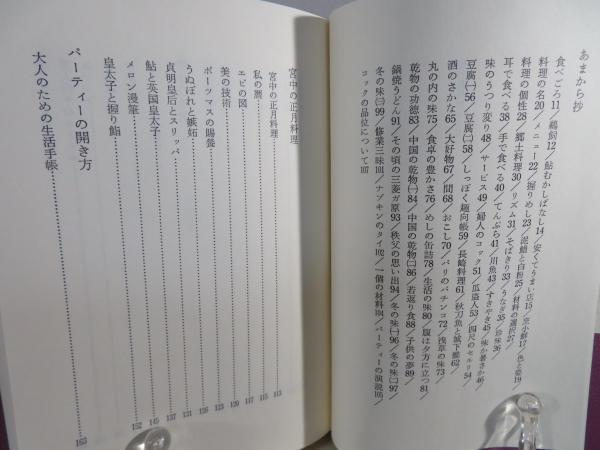 あまから抄
食べごろ11／鵜飼12／鮎むかしばなし14／安くてうまい店15／京小鮒17／色と姿19
料理の名20／メニュー22／握りめし23／泥鰌と白粉25／材料の選択27
料理の個性28／郷土料理30／リズム31／そばきり33／うなぎ35／珍味36
耳で食べる38／手で食べる40／てんぷら41／川魚43／すきやき45／味か暑さか46
味のうつり変り48／サービス49／婦人のコック51／瓜盗人53／四尺のセルリ54
豆腐㈠56／豆腐㈡58／しっぽく趣向帳59／長崎料理61／秋刀魚と城下鰈62
酒のさかな65／大好物67／間68／おこし70／パリのパチンコ72／浅草の味73
丸の内の味75／食卓の豊かさ76／めしの缶詰78／生活の味80／腹は夕方に立つ81
乾物の功徳83／中国の乾物㈠84／中国の乾物㈡86／若返り食88／子供の夢89
鍋焼うどん91／その頃の三菱ガ原93／秩父の思い出94／冬の味㈠96／冬の味㈡97
冬の味㈢99／修業三昧101／ナプキンのタイ102／一個の材料104／パーティーの演説105
コックの品位について107
宮中の正月料理
宮中の正月料理 113
私の暦 115
エビの図 117
美の技術 120
ポーツマスの賜餐 123
うぬぼれと嫉妬 126
貞明皇后とスリッパ 131
鮎と英国皇太子 137
メロン漫筆 145
皇太子と握り鮨 152
パーティーの開き方
大人のための生活手帳 163